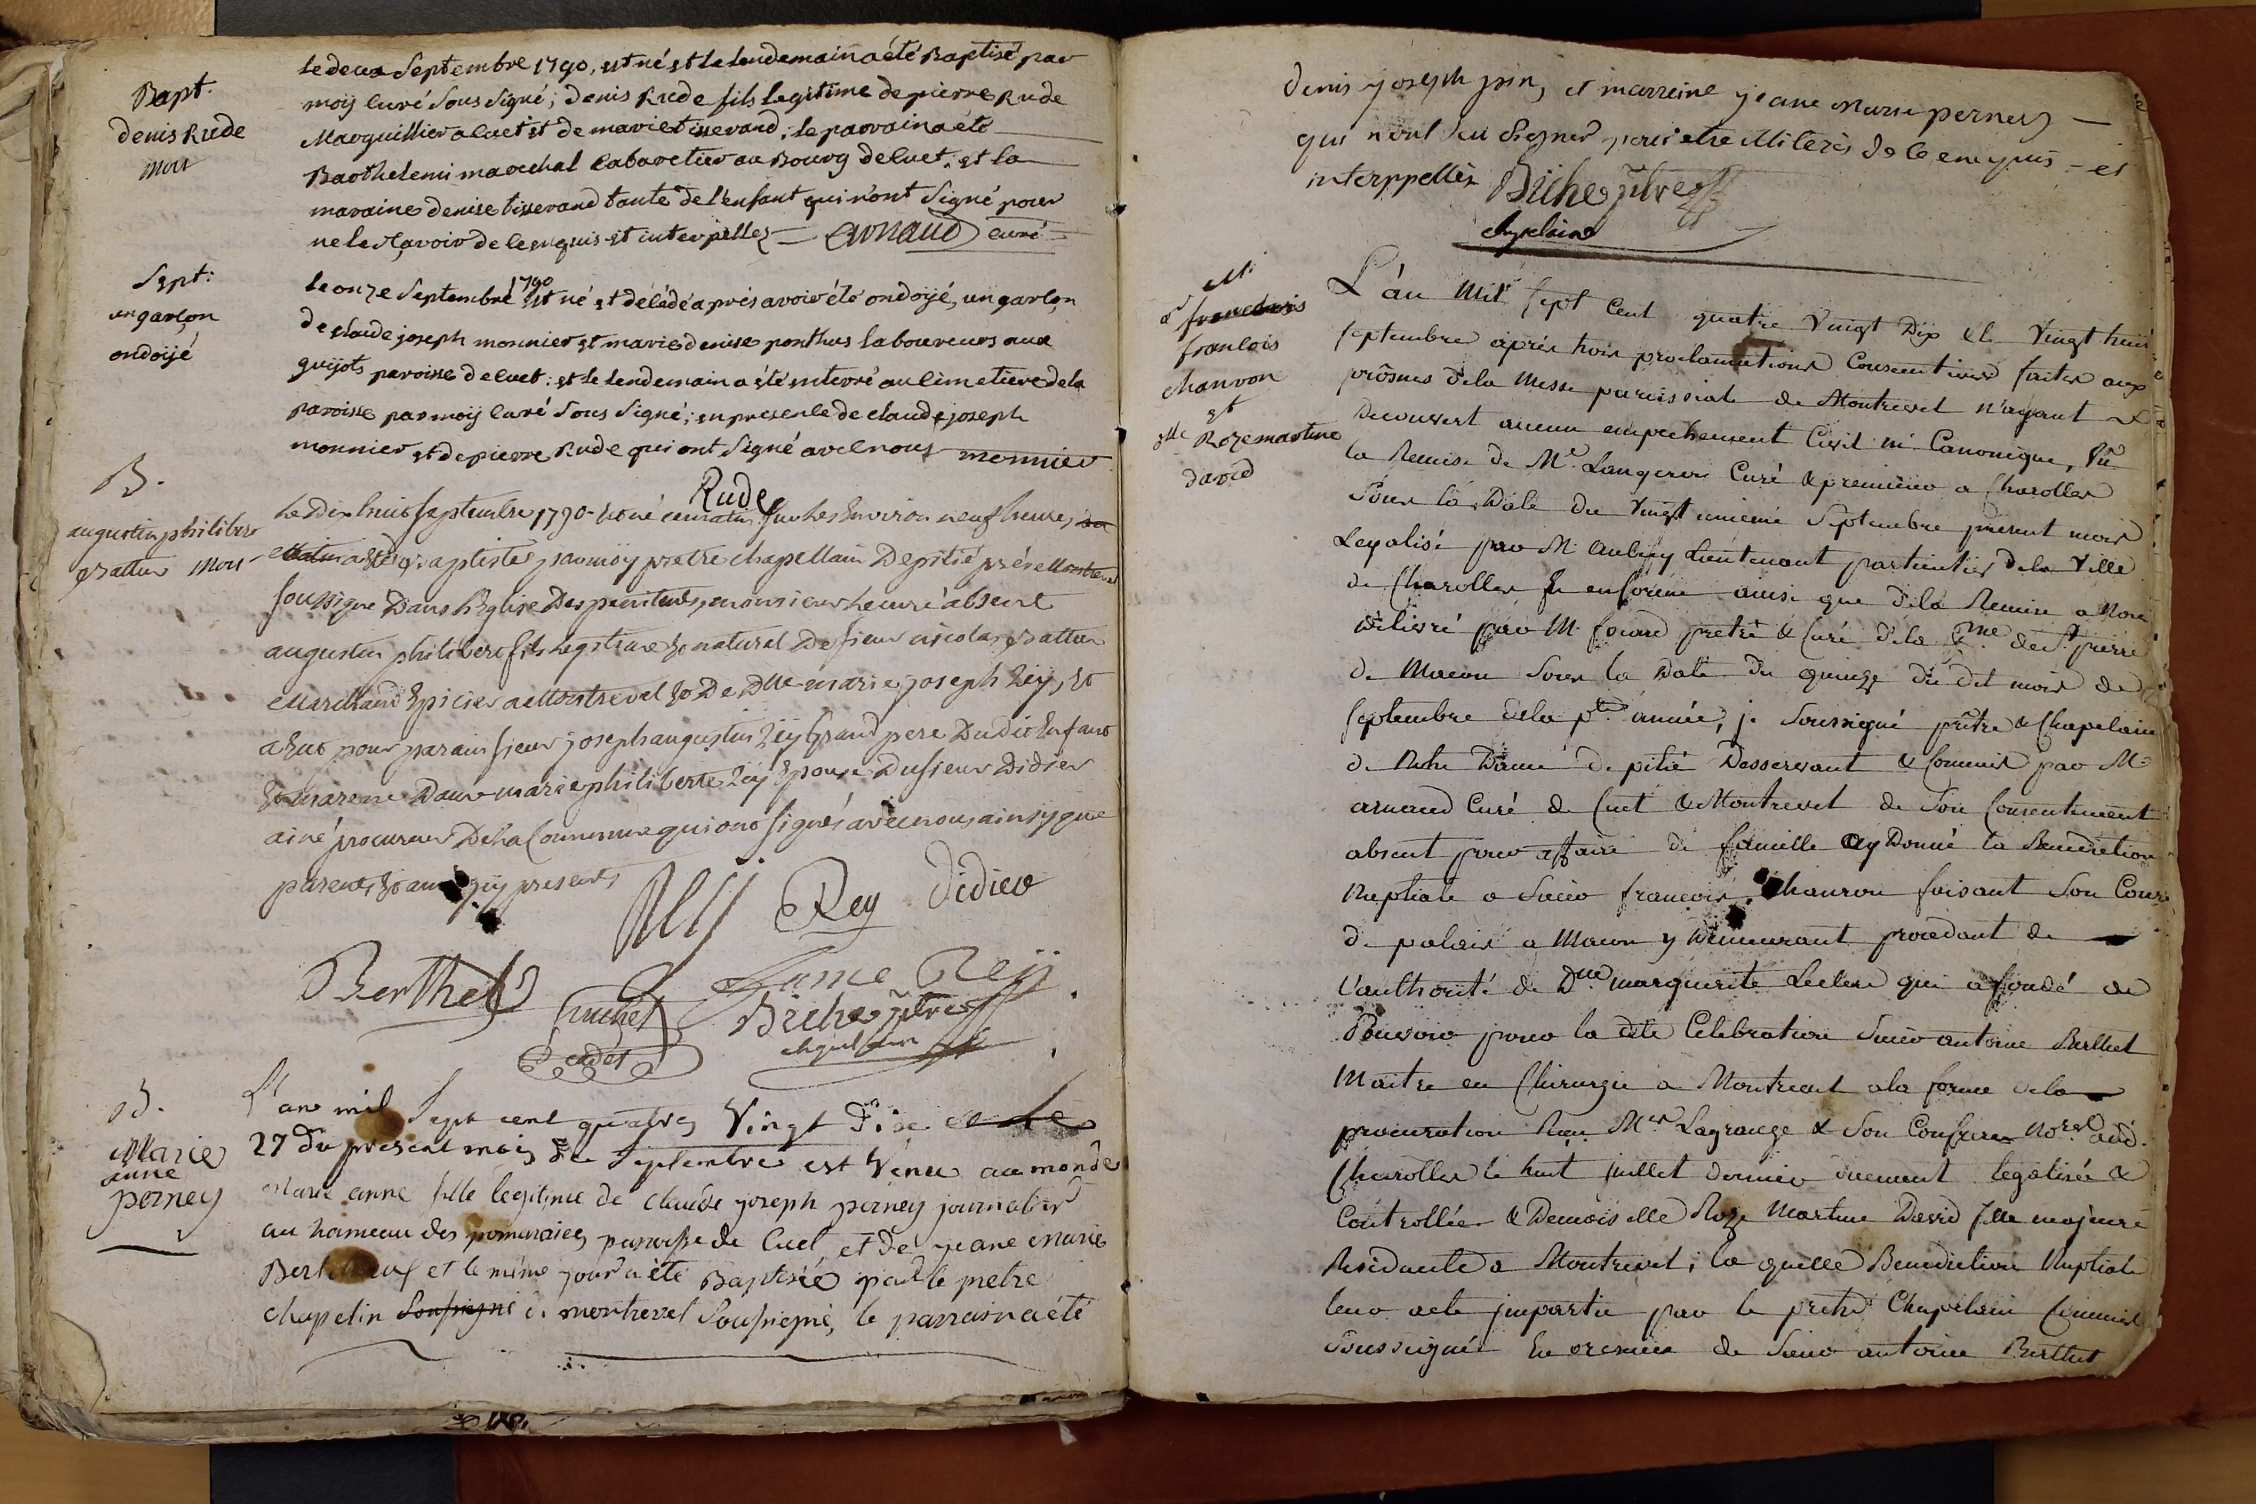 Bapt.
denis Rude
mort
le deux Septembre 1790, est né et le lendemain a été Baptisé par
moij Curé Sous Signé; denis Rude fils legitime de pierre Rude
Marguillier a Cuet et de marie tisserand; le parrain a été
Barthelemi marechal Cabaretier au Bourg de Cuet; et la
maraine denise tisserand tante de l'enfant qui n'ont Signé pour
ne le Sçavoir de ce enquis et interpellez — Arnaud curé
Sept:
un garçon
ondoijé
le onze Septembre 1790 est né et décédé après avoir été ondoijé, un garçon
de claude joseph monnier et marie denise ponthus laboureurs aux
guijots paroisse de cuet: et le lendemain a été enterré au Cimetiere de la
paroisse par moij Curé Sous Signé; en presence de claude joseph
monnier et de pierre Rude qui ont Signé avec nous monnier
Rude
B.
augustin philibert
mort
Le Dix huit Septembre 1790 est né ce matin sur les Environ neuf heures,
a été Baptisté par moij pretre chapellain De pitié prés Montrevel
soussigné Dans l'Eglise Des penitents, monsieur le curé absent
augustin philibert fils legitime et naturel De sieur nicolas
Marchand Epicier a Montrevel et De Dlle marie joseph Reij, et
a Eut pour parain sieur joseph augustin Reij Grand pere Dudit Enfant
et marene Dame marie philiberte Reij Epouse Du sieur Didier
ainé procureur De la Commune qui ont signés avec nous ainsy que
parents et amis presents
Reij Rey Didier
Berthet Reij
cadet
Biche ptre
chapelain
B.
Marie
anne
perney
L'ane mil Sept cent quatres Vingt Dix et le
27 du present mois de Septembre est Venu au monde
Marie anne fille legitime de claude joseph perney journalier
au hameau des pomaraies parroisse de Cuet, et de jeane marie
et le même jour a été Baptisée par le pretre
chapelin Soussigné de montrevel Soussigné, le parrain a été
denis joseph join, et marreine jeane marie perney —
qui n'ont Seu Signer pour etre illiterés de ce enquis — et
interppellés Biche ptre
chapelain
M.
francois
francois
chanvon
et
dlle Roze martine
david
L'an Mil sept Cent quatre Vingt Dix & le Vingt huit
Septembre après trois proclamations Consecutives faites aux
prônes de la Messe paroissiale de Montrevel n'ayant
Decouvert aucun empechement Civil ni Canonique, Vû
la Remise de Mr. Langeron Curé de premiere a Charolles
Sous la Date du Vingt unieme Septembre present mois
Legalisé par M. Aubery Lieutenant particulier de la Ville
de Charolles en forme ainsi que de la Remise a Nous
délivré par M. Focard pretre & Curé de la psse de St. pierre
de Macon Sous la Date du quinze du dit mois de
Septembre de la pte. année, je Soussigné prêtre & Chapelain
de Notre Dame de pitié Desservant & Commis par Mr
arnaud Curé de Cuet & Montrevel de Son Consentement
absent pour affaire de famille ay Donné la Benediction
Nuptiale a Sieur francois Chanvon faisant Son Cours
de palais a Macon y Demeurant procedant de
l'authorité de Dme marguerite Leclerc qui a fondé de
Pouvoir pour la dite Celebration Sieur antoine Berthet
Maitre en Chirurgie a Montrevel a la forme de la
procuration Reçu Mes Lagrange & Son Confrere Nores. aud.
Charolles le huit juillet dernier duement legalisée &
Controllée & Demoiselle Roze Martine David fille majeure
Residante a Montrevel; la quelle Benediction Nuptiale
leur a été jmpartie par le pretre Chapelain Commis
Soussigné En presence de Sieur antoine Berthet